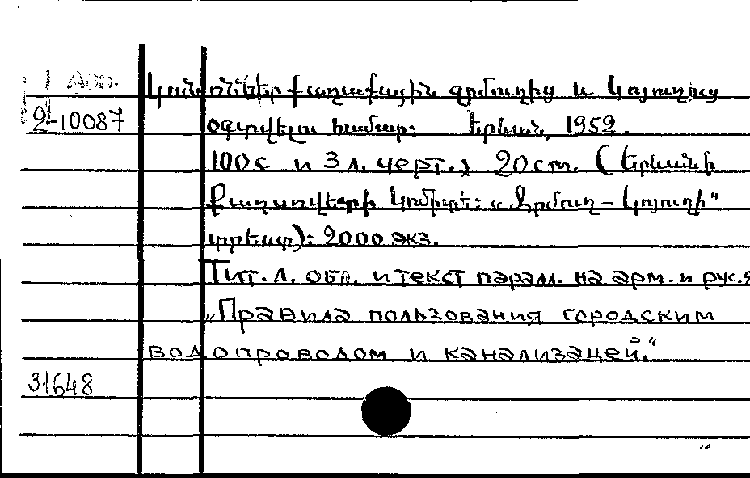 1 Арм.
2-10087
Կանոններ քաղաքային ջրմուղից և կոյուղուց
օգտվելու համար: Երևան, 1952.
100 с. и 3 л. черт.; 20 ст. (Երևանի
Քաղսովետի կոմիտե: „Ջրմուղ - կոյուղի"
տրեստ): 2000 экз.
Тит. л. обл. и текст парал. на арм. и рус.я
„Правила пользования городским
водопроводом и канализацей."
31648